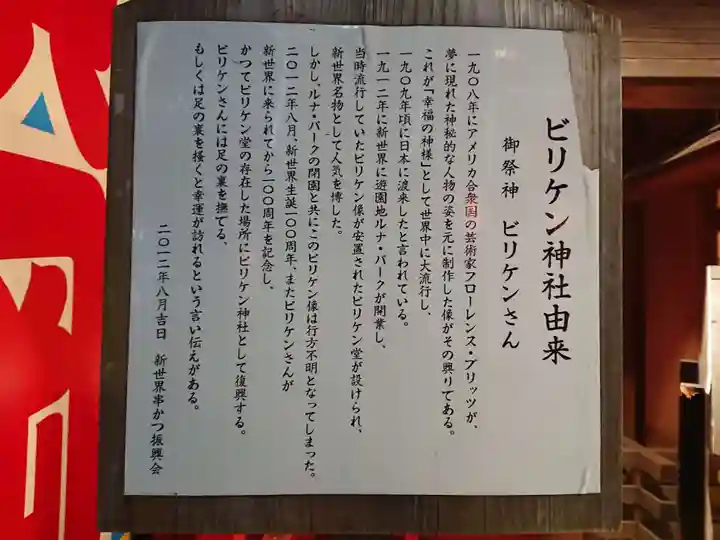 ビリケン神社由来
御祭神 ビリケンさん
一九〇八年にアメリカ合衆国の芸術家フローレンス・プリッツが、
夢に現れた神秘的な人物の姿を元に制作した像がその興りである。
これが「幸福の神様」として世界中に大流行し、
一九〇九年頃に日本に渡来したと言われている。
一九一二年に新世界に遊園地ルナ・パークが開業し、
当時流行していたビリケン像が安置されたビリケン堂が設けられ、
新世界名物として人気を博した。
しかし、ルナ・パークの閉園と共にこのビリケン像は行方不明となってしまった。
二〇一二年八月、新世界生誕一〇〇周年、またビリケンさんが
新世界に来られてから一〇〇周年を記念し、
かつてビリケン堂の存在した場所にビリケン神社として復興する。
ビリケンさんには足の裏を撫でる、
もしくは足の裏を掻くと幸運が訪れるという言い伝えがある。
二〇一二年八月吉日 新世界串かつ振興会